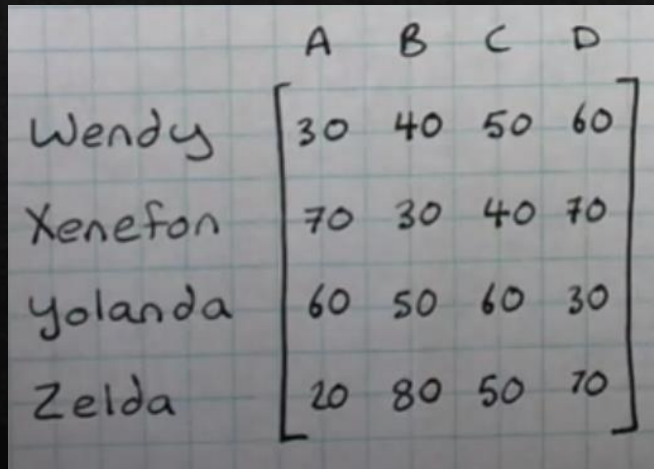 A B C D
Wendy 30 40 50 60
Xenefon 70 30 40 70
Yolanda 60 50 60 30
Zelda 20 80 50 70